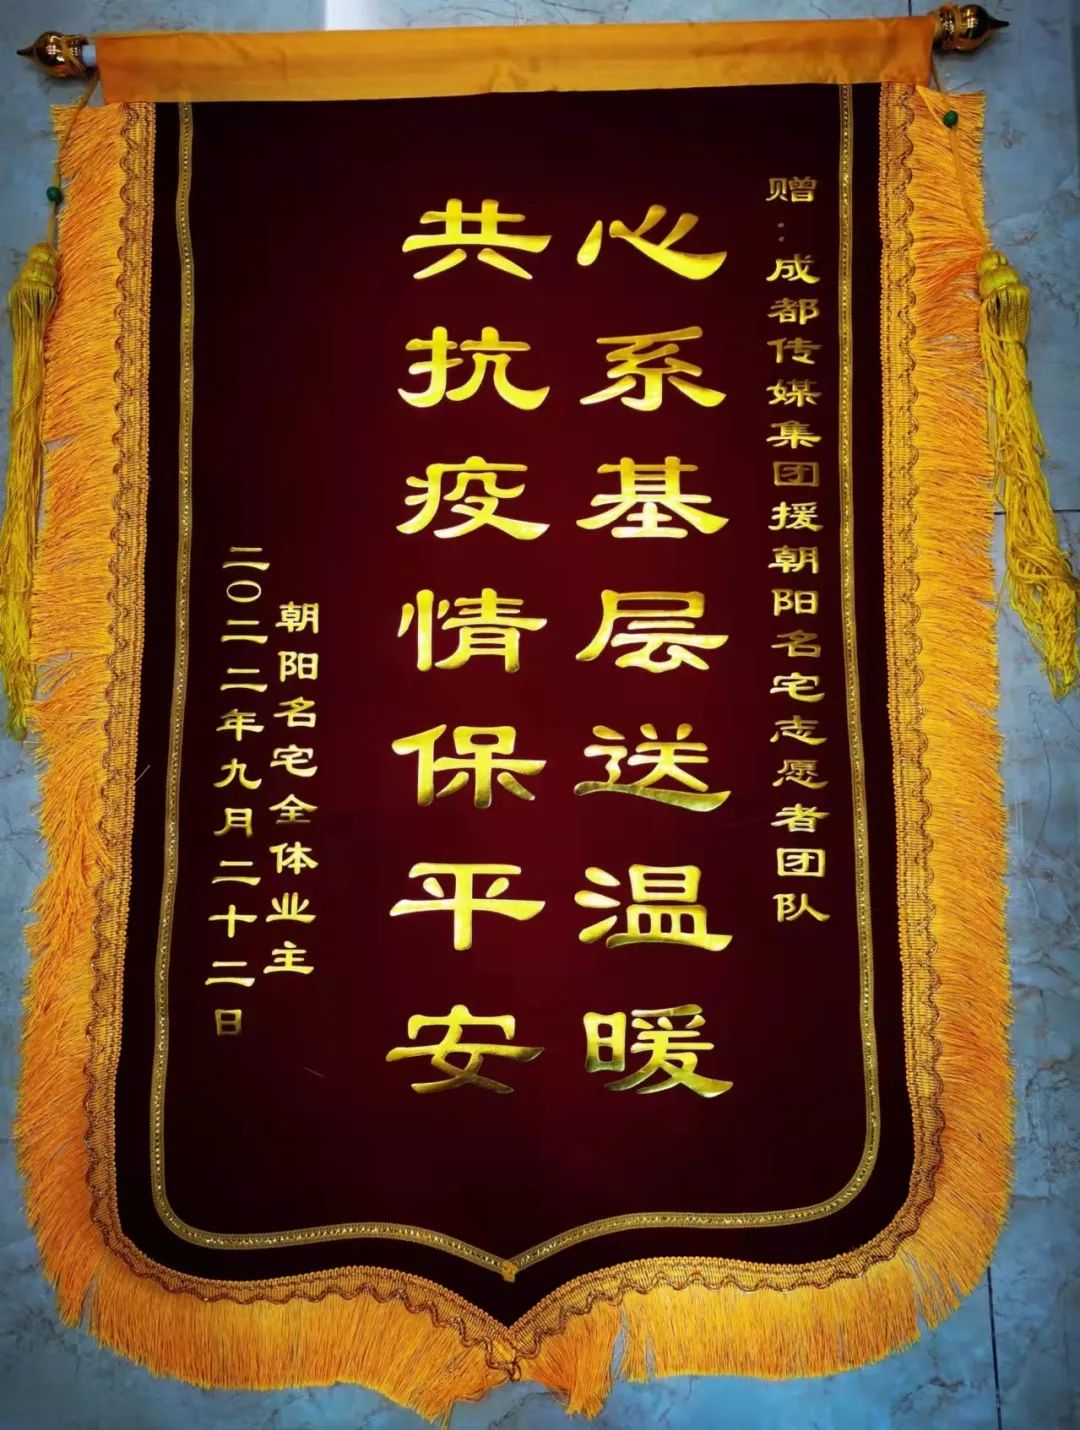 赠：成都传媒集团援朝阳名宅志愿者团队
心系基层送温暖
共抗疫情保平安
朝阳名宅全体业主
二〇二二年九月二十二日